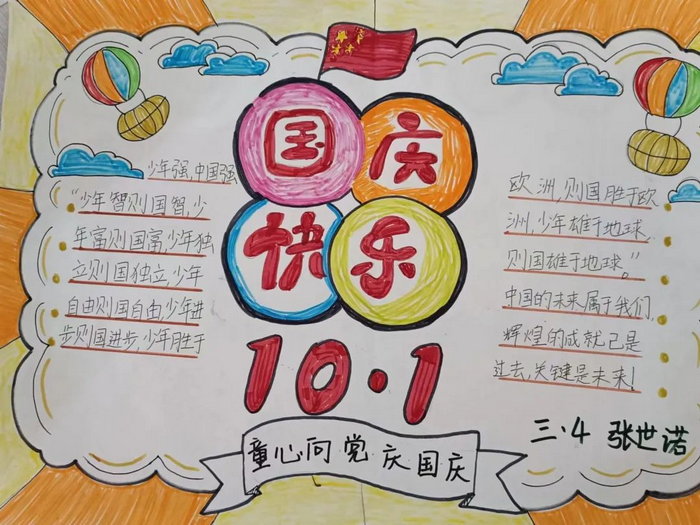 国庆
快乐
10·1
童心向党庆国庆
少年强,中国强
“少年智则国智,少
年富则国富,少年独
立则国独立,少年
自由则国自由,少年进
步则国进步,少年胜于
欧洲,则国胜于欧
洲,少年雄于地球,
则国雄于地球。”
中国的未来属于我们,
辉煌的成就已是
过去,关键是未来!
三·4 张世诺